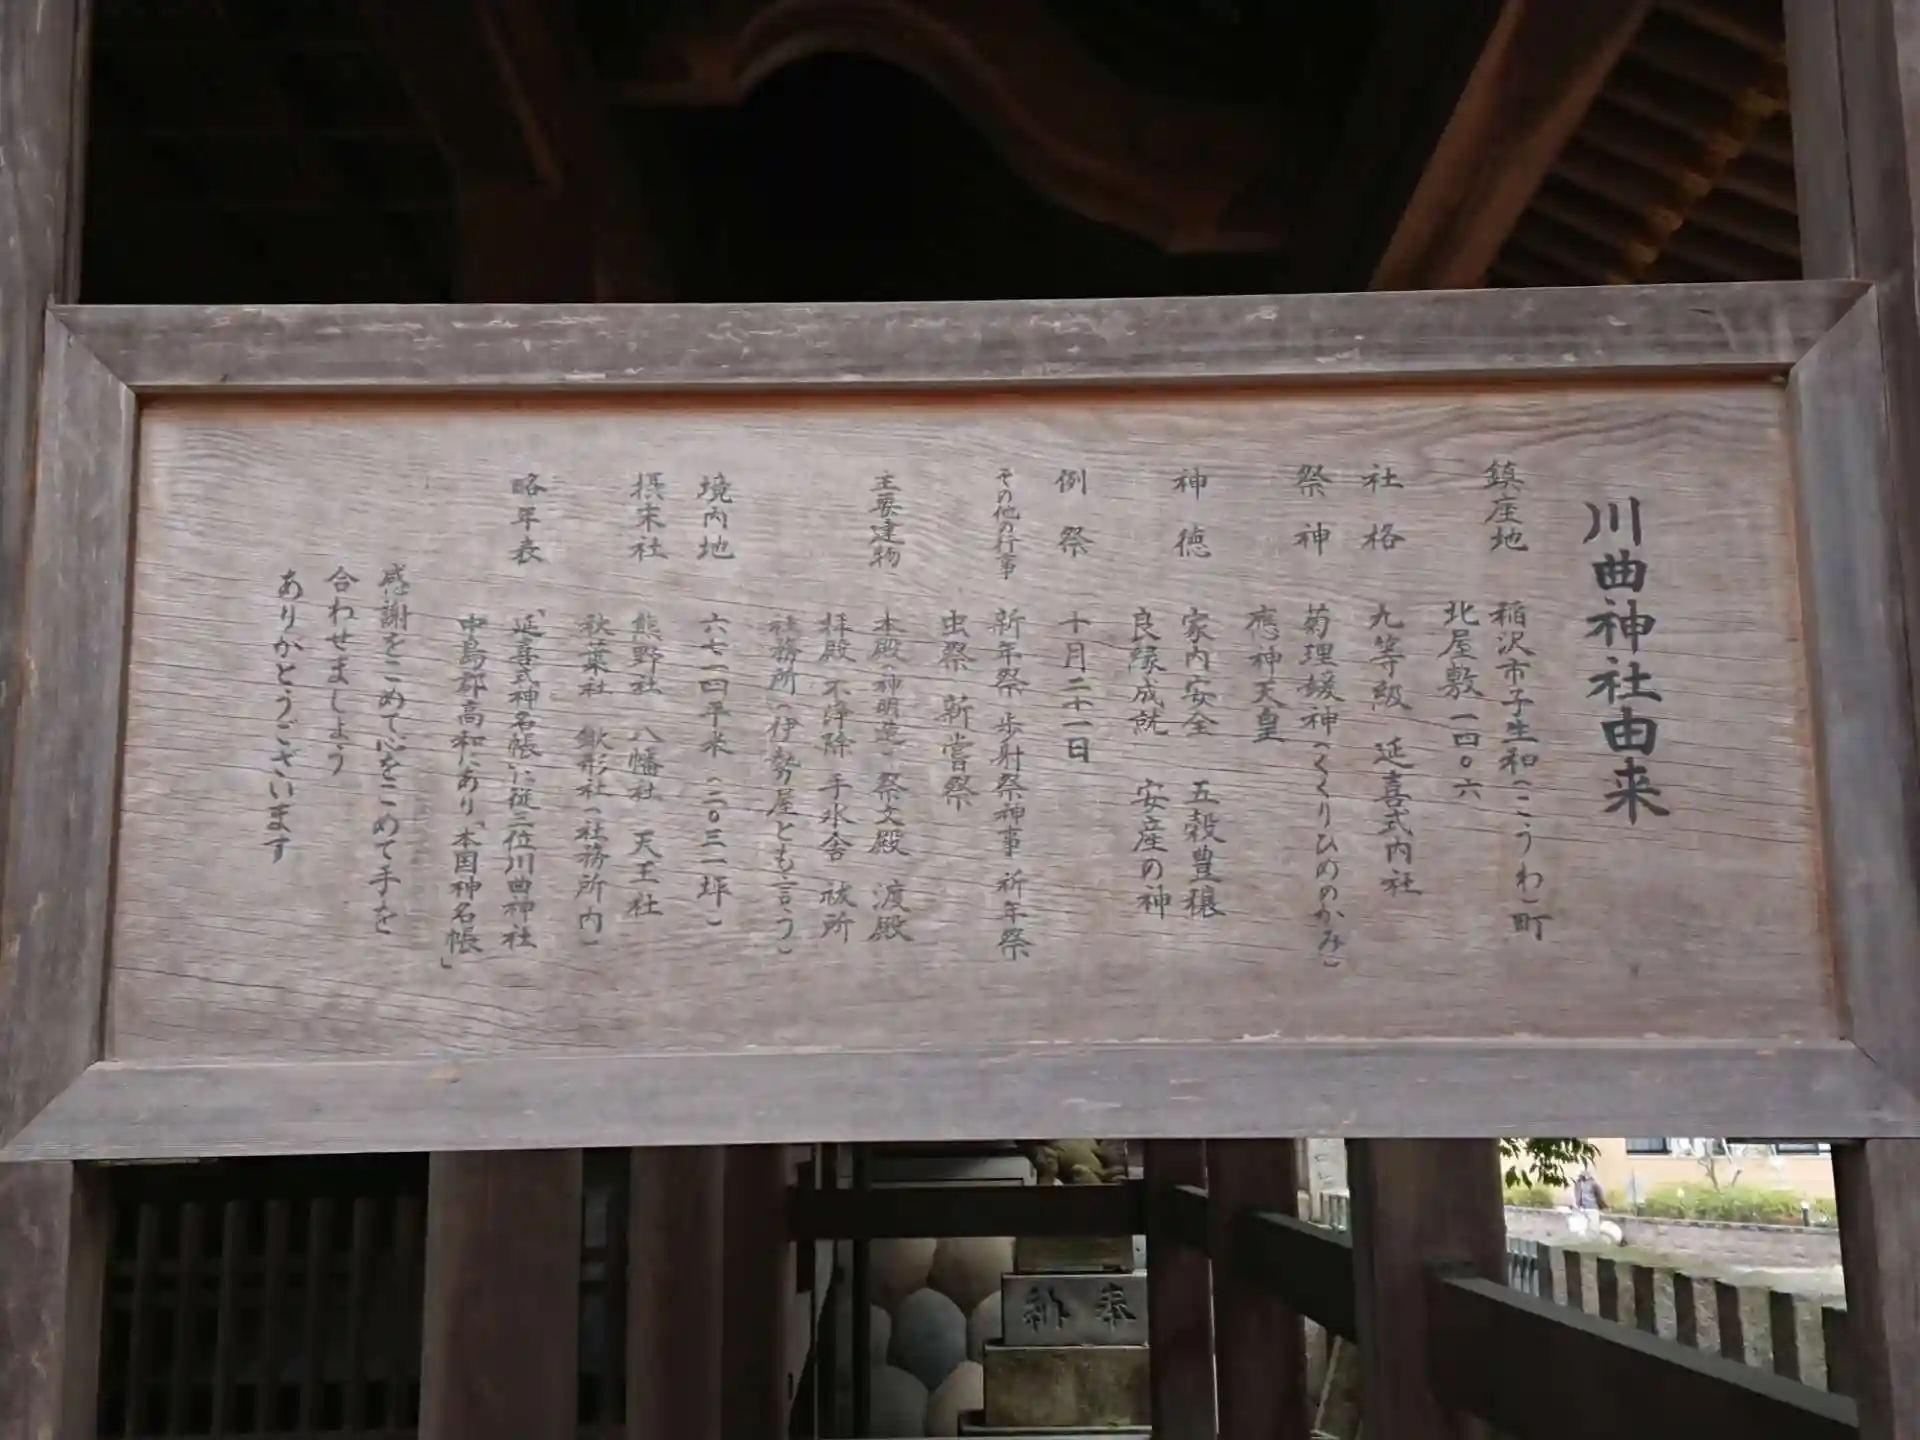 川曲神社由来
鎮座地 稲沢市子生和(こうわ)町
北屋敷一四〇六
社格 九等級 延喜式内社
祭神 菊理媛神(くくりひめのかみ)
應神天皇
神徳 家内安全 五穀豊穣
良縁成就 安産の神
例祭 十月二十一日
その他の行事 新年祭 歩射祭神事 祈年祭
虫祭 新嘗祭
主要建物 本殿(神明造) 祭文殿 渡殿
拝殿 不浄除 手水舎 祓所
社務所(伊勢屋とも言う)
境内地 六七一四平米(二〇三一坪)
摂末社 熊野社 八幡社 天王社
秋葉社 鍬形社(社務所内)
略年表 「延喜式神名帳」に従三位川曲神社
中島郡高和にあり「本国神名帳」
感謝をこめて心をこめて手を
合わせましょう
ありがとうございます
奉納